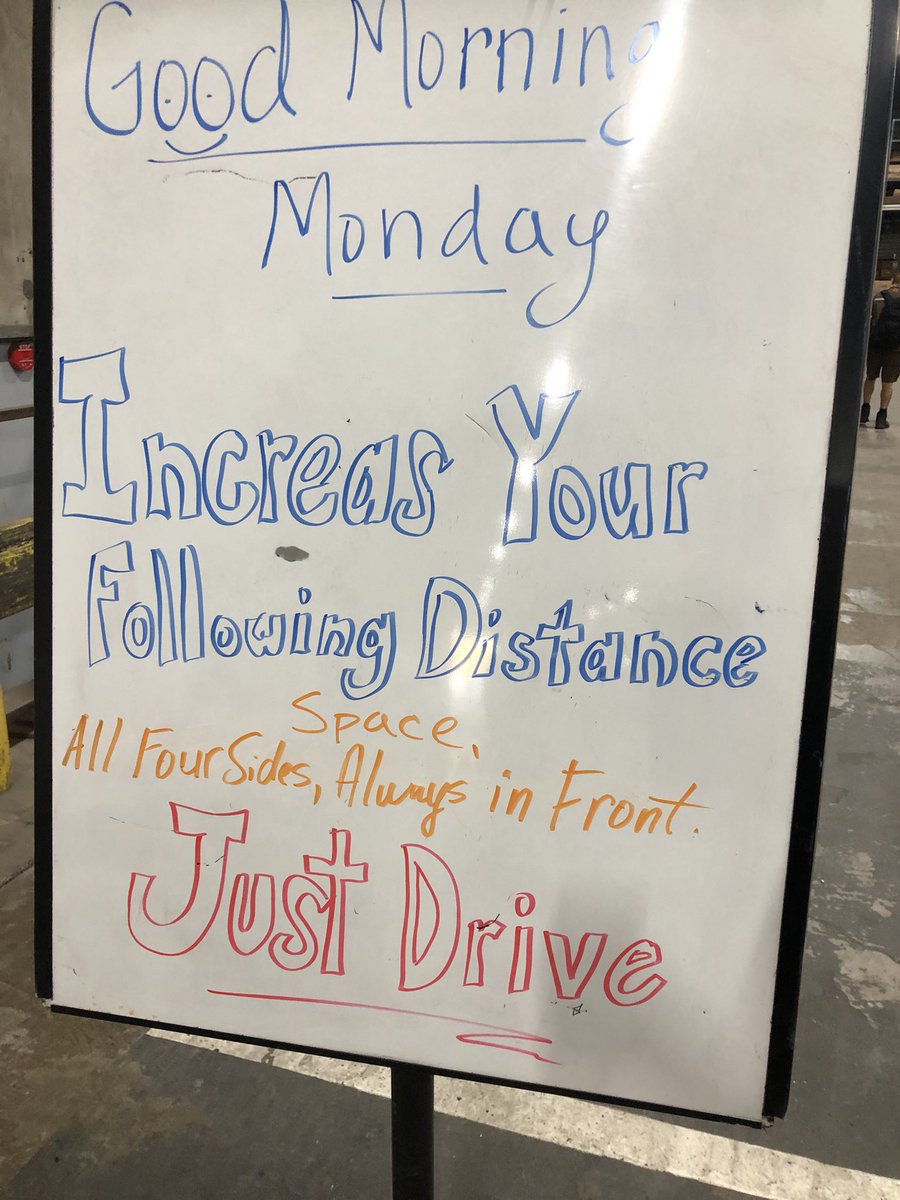 Good Morning
Monday
Increas Your
Following Distance
Space,
All Four Sides, Always in Front.
Just Drive